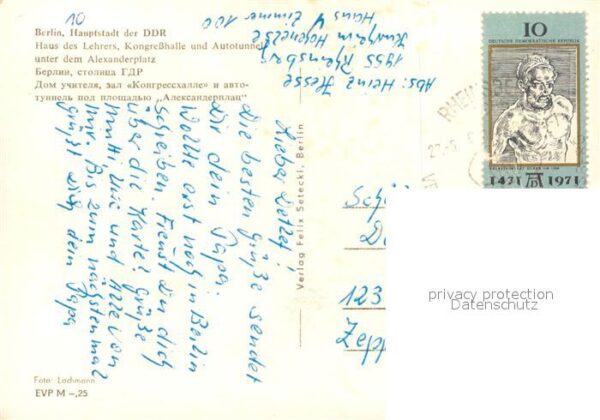 10
Berlin, Hauptstadt der DDR
Haus des Lehrers, Kongreßhalle und Autotunnel
unter dem Alexanderplatz
Берлин, столица ГДР
Дом учителя, зал «Конгрессхалле» и авто-
туннель под площадью „Александерплац“
Abs: Heinz Hesse
1955 Rheinsberg
Haus 4 Zimmer 100
Lieber Detlef!
Die besten Grüße sendet
Dir dein Papa.
Wollte erst noch in Berlin
schreiben. Freust du dich
über die Karte? Grüße
Mutti, und von
mir. Bis zum nächstenmal
grüßt Dich dein Papa
Verlag Felix Setecki, Berlin
10
DEUTSCHE DEMOKRATISCHE REPUBLIK
1471 AD 1971
RHEINSB
123
Zepp
privacy protection
Datenschutz
Foto: Lachmann
EVP M –,25